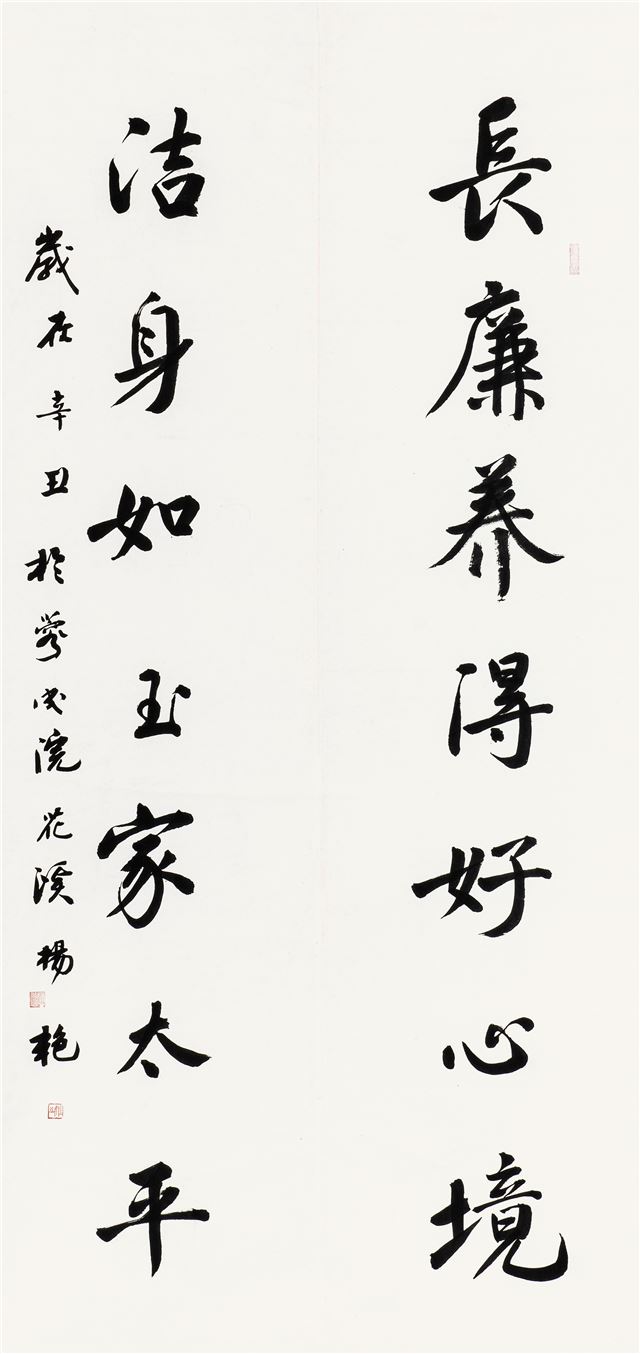 長廉养得好心境
洁身如玉家太平
歲在辛丑於蓉城浣花溪楊艳